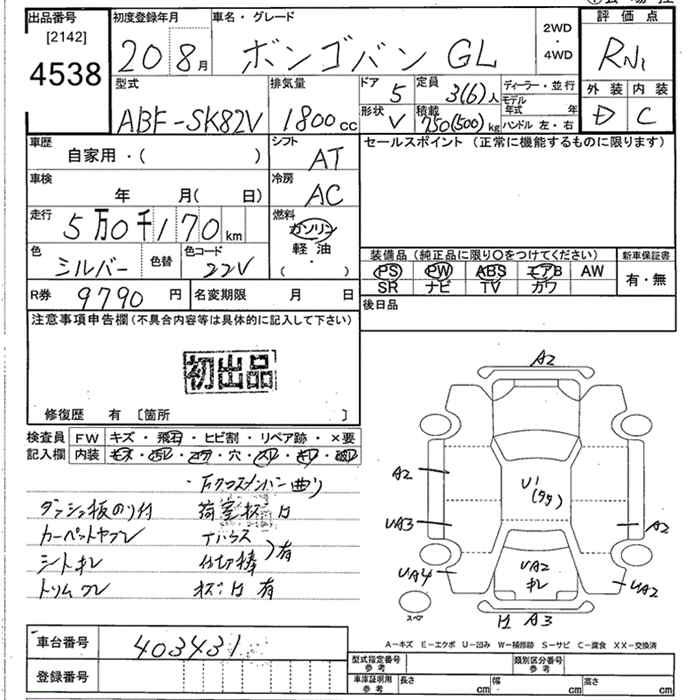 出品番号
[2142]
4538
初度登録年月
20 8月
車名・グレード
ボンゴバン GL
2WD
・
4WD
評価点
RN1
外装 内装
D C
型式
ABF-SK82V
排気量
1800cc
ドア 5
形状 V
定員 3(6)人
積載 750(500)kg
ディーラー・並行
モデル年式 年
ハンドル 左・右
車歴
自家用・( )
シフト
AT
セールスポイント (正常に機能するものに限ります)
車検
年 月( 日)
冷房
AC
走行
5万0千170km
燃料
ガソリン
軽・油
・
( )
色
シルバー
色替
色コード
22V
装備品 (純正品に限り○をつけてください)
PS PW ABS エアB AW
SR ナビ TV カワ
新車保証書
有・無
R券 9790円
名変期限 月 日
後日品
注意事項申告欄(不具合内容等は具体的に記入して下さい)
初出品
修復歴 有 [箇所 ]
検査員
記入欄
FW キズ・飛石・ヒビ割・リペア跡・×要
内装
下クロスメンバー曲り
ダッシュ板のり付
カーペットヤブレ
シートキレ
トリムワレ
荷室
仕切棒
有
A2
A2
UA3
UA4
U1
UA2
キレ
A2
UA2
スペア
A3
A-キズ E-エクボ U-凹み W-補修跡 S-サビ C-腐食 XX-交換済
車台番号 403431
登録番号
型式指定番号
参考
類別区分番号
参考
車庫証明用
参考
長さ cm
幅 cm
高さ cm